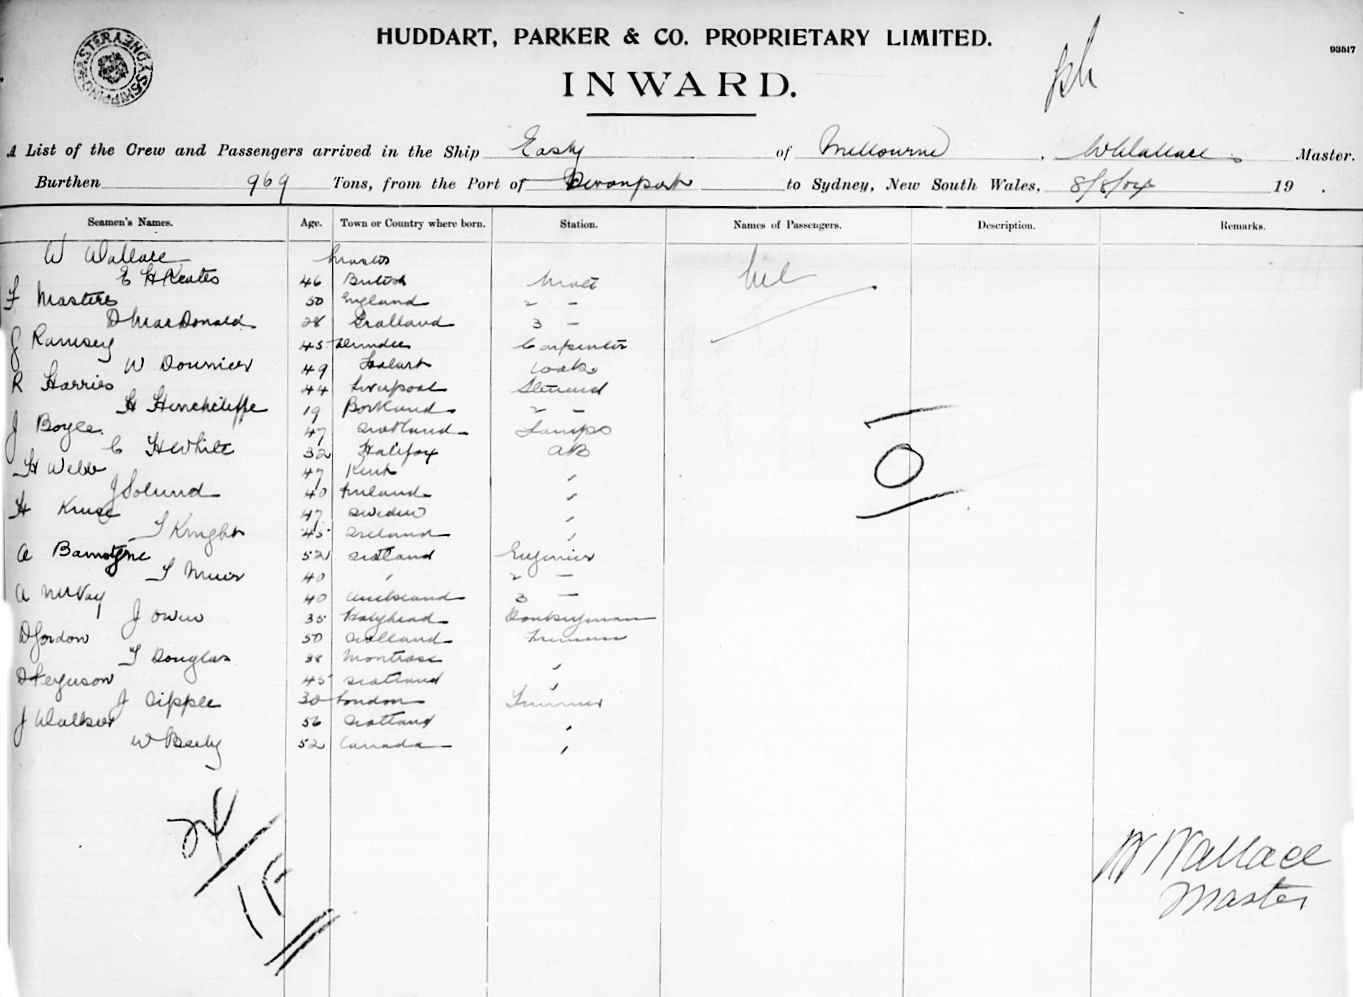 HUDDART, PARKER & CO. PROPRIETARY LIMITED.
93517
INWARD.
A List of the Crew and Passengers arrived in the Ship Easby of Melbourne, W Wallace, Master.
Burthen 969 Tons, from the Port of Devonport to Sydney, New South Wales, 8/8/04 19 .
Seamen's Names. Age. Town or Country where born. Station. Names of Passengers. Description. Remarks.
W Wallace Master
E H Keates 46 British Mate nil
F Masters 50 England 2 -
D MacDonald 28 Scotland 3 -
J Ramsey 45 Dundee Carpenter
W 49 Hobart Cook
R Harries 44 Liverpool Steward
H Hinchcliffe 19 2 -
J Boyle 47 Scotland Lamps
C H White 32 Halifax AB
H Webb 47 Kent "
J Solund 40 Finland "
H Kruse 47 Sweden "
T Knight 45 Ireland "
A 52 Scotland Engineer
T Muir 40 " 2 -
A McKay 40 Auckland 3 -
J Owen 35 Holyhead Donkeyman
D Gordon 50 Scotland Fireman
T Douglas 38 Montrose "
D Ferguson 45 Scotland "
J Sipple 30 London Trimmer
J Walker 56 Scotland "
W Beeby 52 Canada "
24
1F
W Wallace
Master